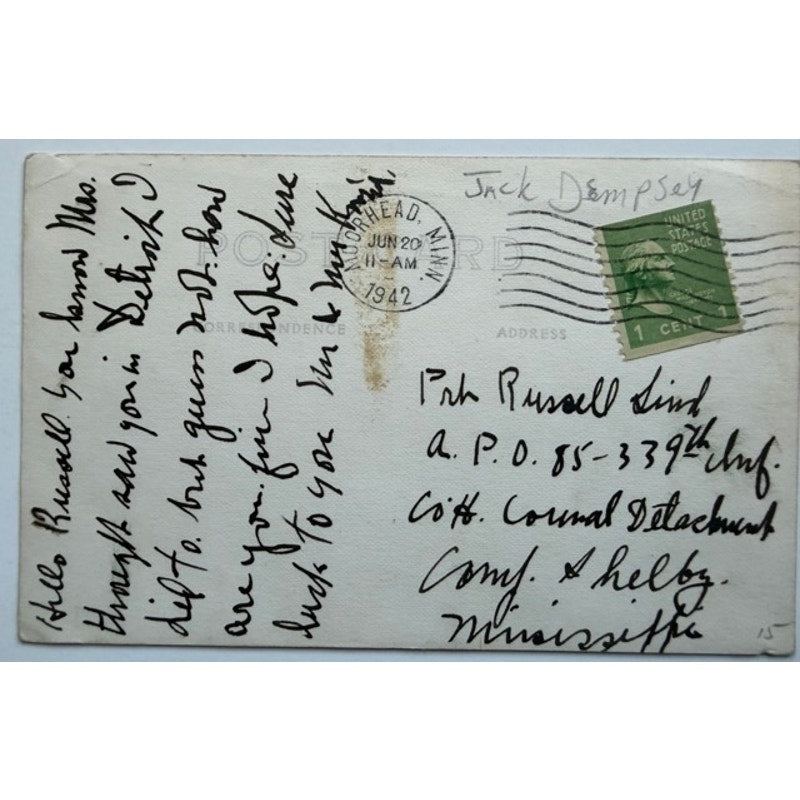 Hello Russell. You know Mrs.
thought saw you in Detroit I
did to. but guess not. how
are you. fine I hope. Sure
luck to you Mr & Mrs
Jack Dempsey
POST CARD
CORRESPONDENCE
ADDRESS
MOORHEAD, MINN.
JUN 20
11-AM
1942
UNITED
STATES
POSTAGE
1 CENT 1
Prt Russell Lind
A. P. O. 85-339th Inf.
Co H. Detachment
Camp. Shelby.
Mississippi
15